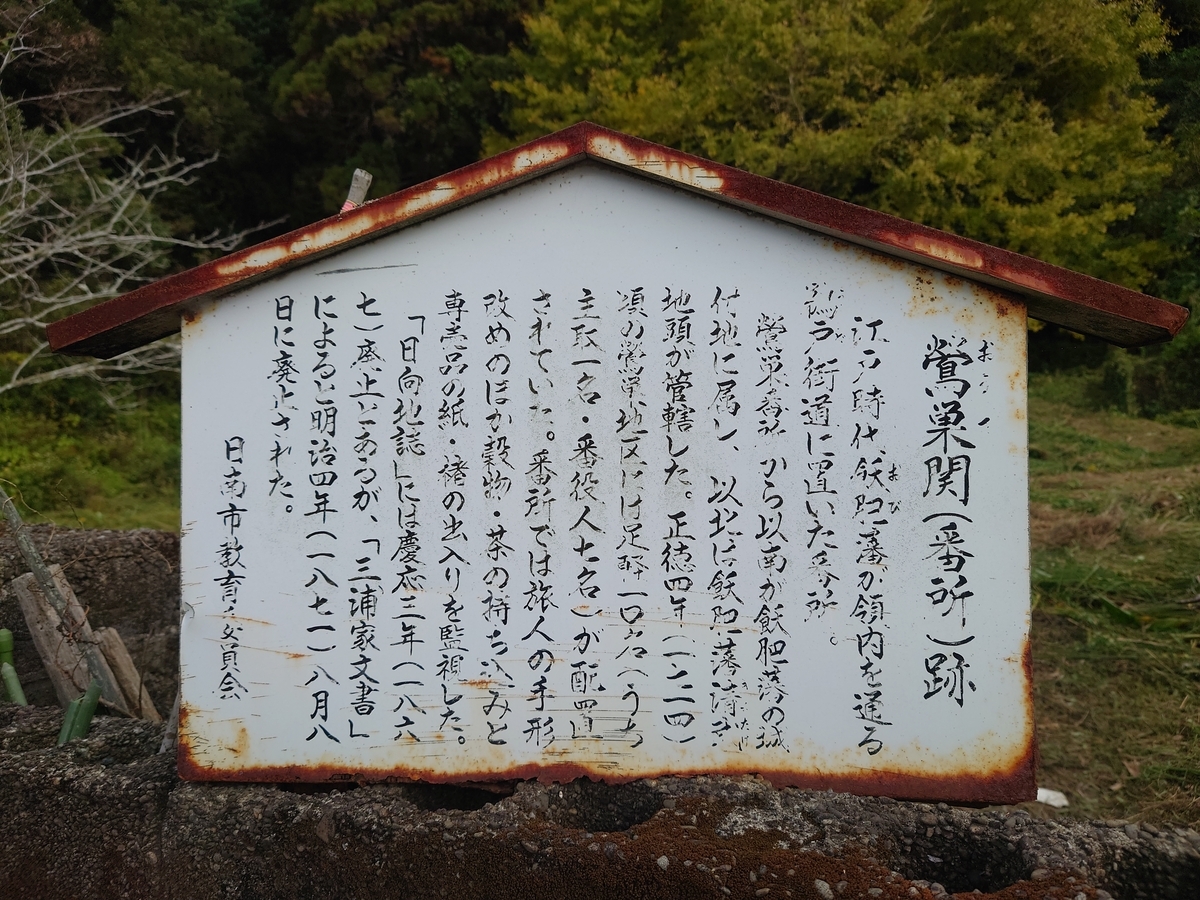 鶯巣関(番所)跡
江戸時代、飫肥藩が領内を通る
鵜戸街道に置いた番所。
鶯巣番所から以南が飫肥藩の城
付地に属し、以北は飫肥藩清武
地頭が管轄した。正徳四年(一七一四)
頃の鶯巣地区には足軽一〇名(うち
主取一名・番役人七名)が配置
されていた。番所では旅人の手形
改めのほか穀物・茶の持ち込みと
専売品の紙・楮の出入りを監視した。
「日向地誌」には慶応三年(一八六
七)廃止とあるが、「三浦家文書」
によると明治四年(一八七一)八月八
日に廃止された。
日南市教育委員会